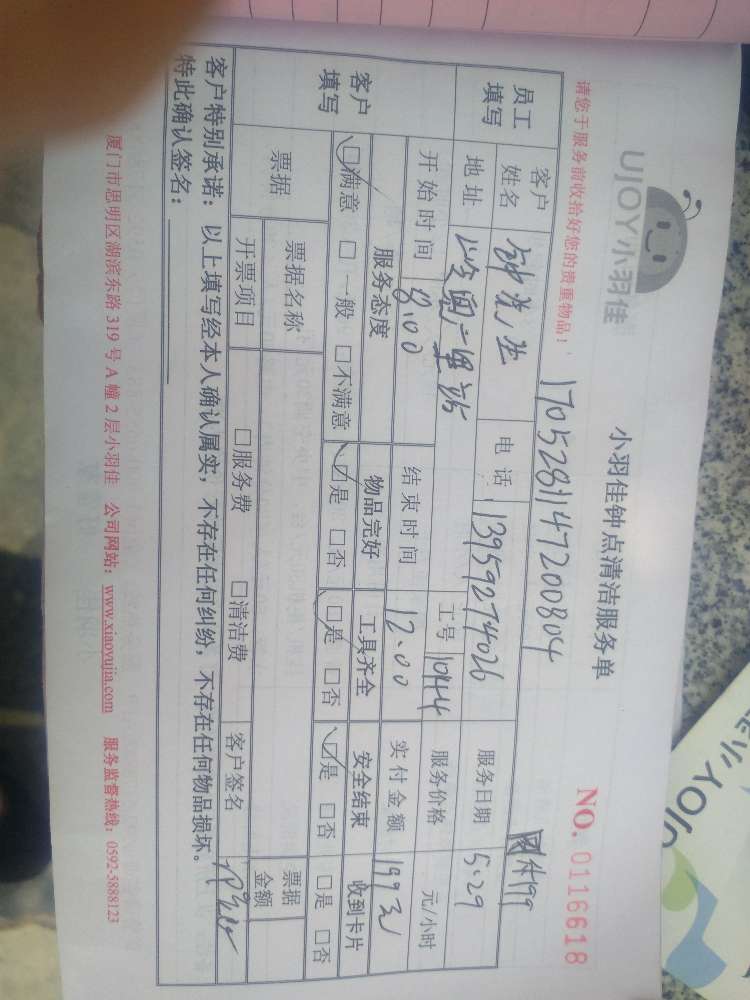 UJOY小羽佳
小羽佳钟点清洁服务单
NO. 0116618
请您于服务前收拾好您的贵重物品!
1705281147200804
员工填写
客户姓名
电话 13959274026
服务日期 5.29
地址
工号 10144
服务价格 元/小时
开始时间 8:00
结束时间 12:00
实付金额 199元
客户填写
服务态度 物品完好 工具齐全 安全结束 收到卡片
☑满意 □一般 □不满意 ☑是 □否 ☑是 □否 ☑是 □否 □是 □否
票据
票据名称
票据金额
开票项目 □服务费 □清洁费
客户签名
客户特别承诺:以上填写经本人确认属实,不存在任何纠纷,不存在任何物品损坏。
特此确认签名:
厦门市思明区湖滨东路 319 号 A 幢 2 层小羽佳 公司网站:www.xiaoyujia.com 服务监督热线:0592-5888123
UJOY小